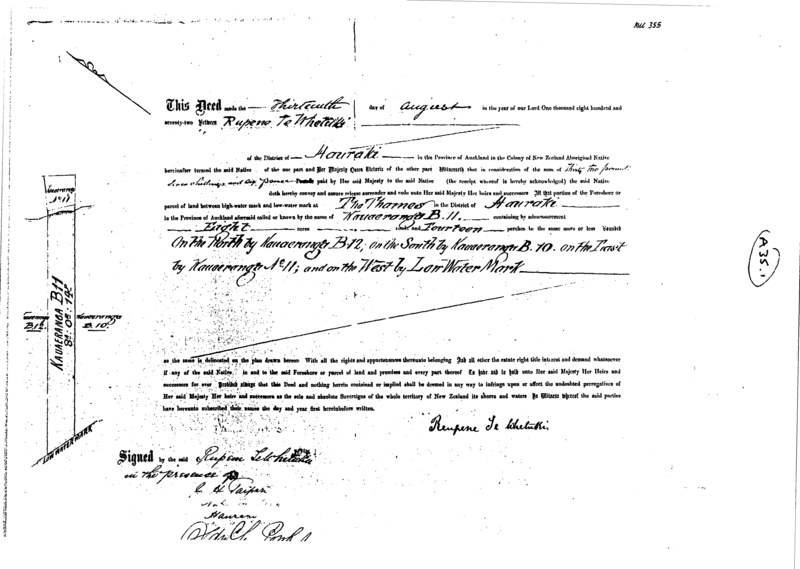 MU 355
This Deed made the Thirteenth day of August in the year of our Lord One thousand eight hundred and
seventy-two Between Rupene Te Whetuki
of the District of Hauraki in the Province of Auckland in the Colony of New Zealand Aboriginal Native
hereinafter termed the said Native of the one part and Her Majesty Queen Victoria of the other part Witnesseth that in consideration of the sum of
shillings and six pence Pounds paid by Her Said Majesty to the said Native (the receipt whereof is hereby acknowledged) the said Native
doth hereby convey and assure release surrender and cede unto Her Said Majesty Her Heirs and successors All that portion of the Foreshore or
parcel of land between high-water mark and low-water mark at The Thames in the District of Hauraki
in the Province of Auckland aforesaid called or known by the name of Kauaeranga B.11. containing by admeasurement
Eight acres roods and Fourteen perches be the same more or less Bounded
On the North by Kauaeranga B.12; on the South by Kauaeranga B.10. on the East
by Kauaeranga No. 11; and on the West by Low Water Mark
as the same is delineated on the plan drawn hereon With all the rights and appurtenances thereunto belonging And all other the estate right title interest and demand whatsoever
if any of the said Native in and to the said Foreshore or parcel of land and premises and every part thereof To have and to hold unto Her said Majesty Her Heirs and
successors for ever Provided always that this Deed and nothing herein contained or implied shall be deemed in any way to infringe upon or affect the undoubted prerogatives of
Her said Majesty Her heirs and successors as the sole and absolute Sovereigns of the whole territory of New Zealand its shores and waters In Witness whereof the said parties
have hereunto subscribed their names the day and year first hereinbefore written.
Reupene Te Whetuki
Signed by the said Rupene Te Whetuki
in the presence of
Kauaeranga
No 11
KAUAERANGA B11
8a. 0r. 14p.
B12.
Kauaeranga
B.10.
LOW WATER MARK
A 35.1